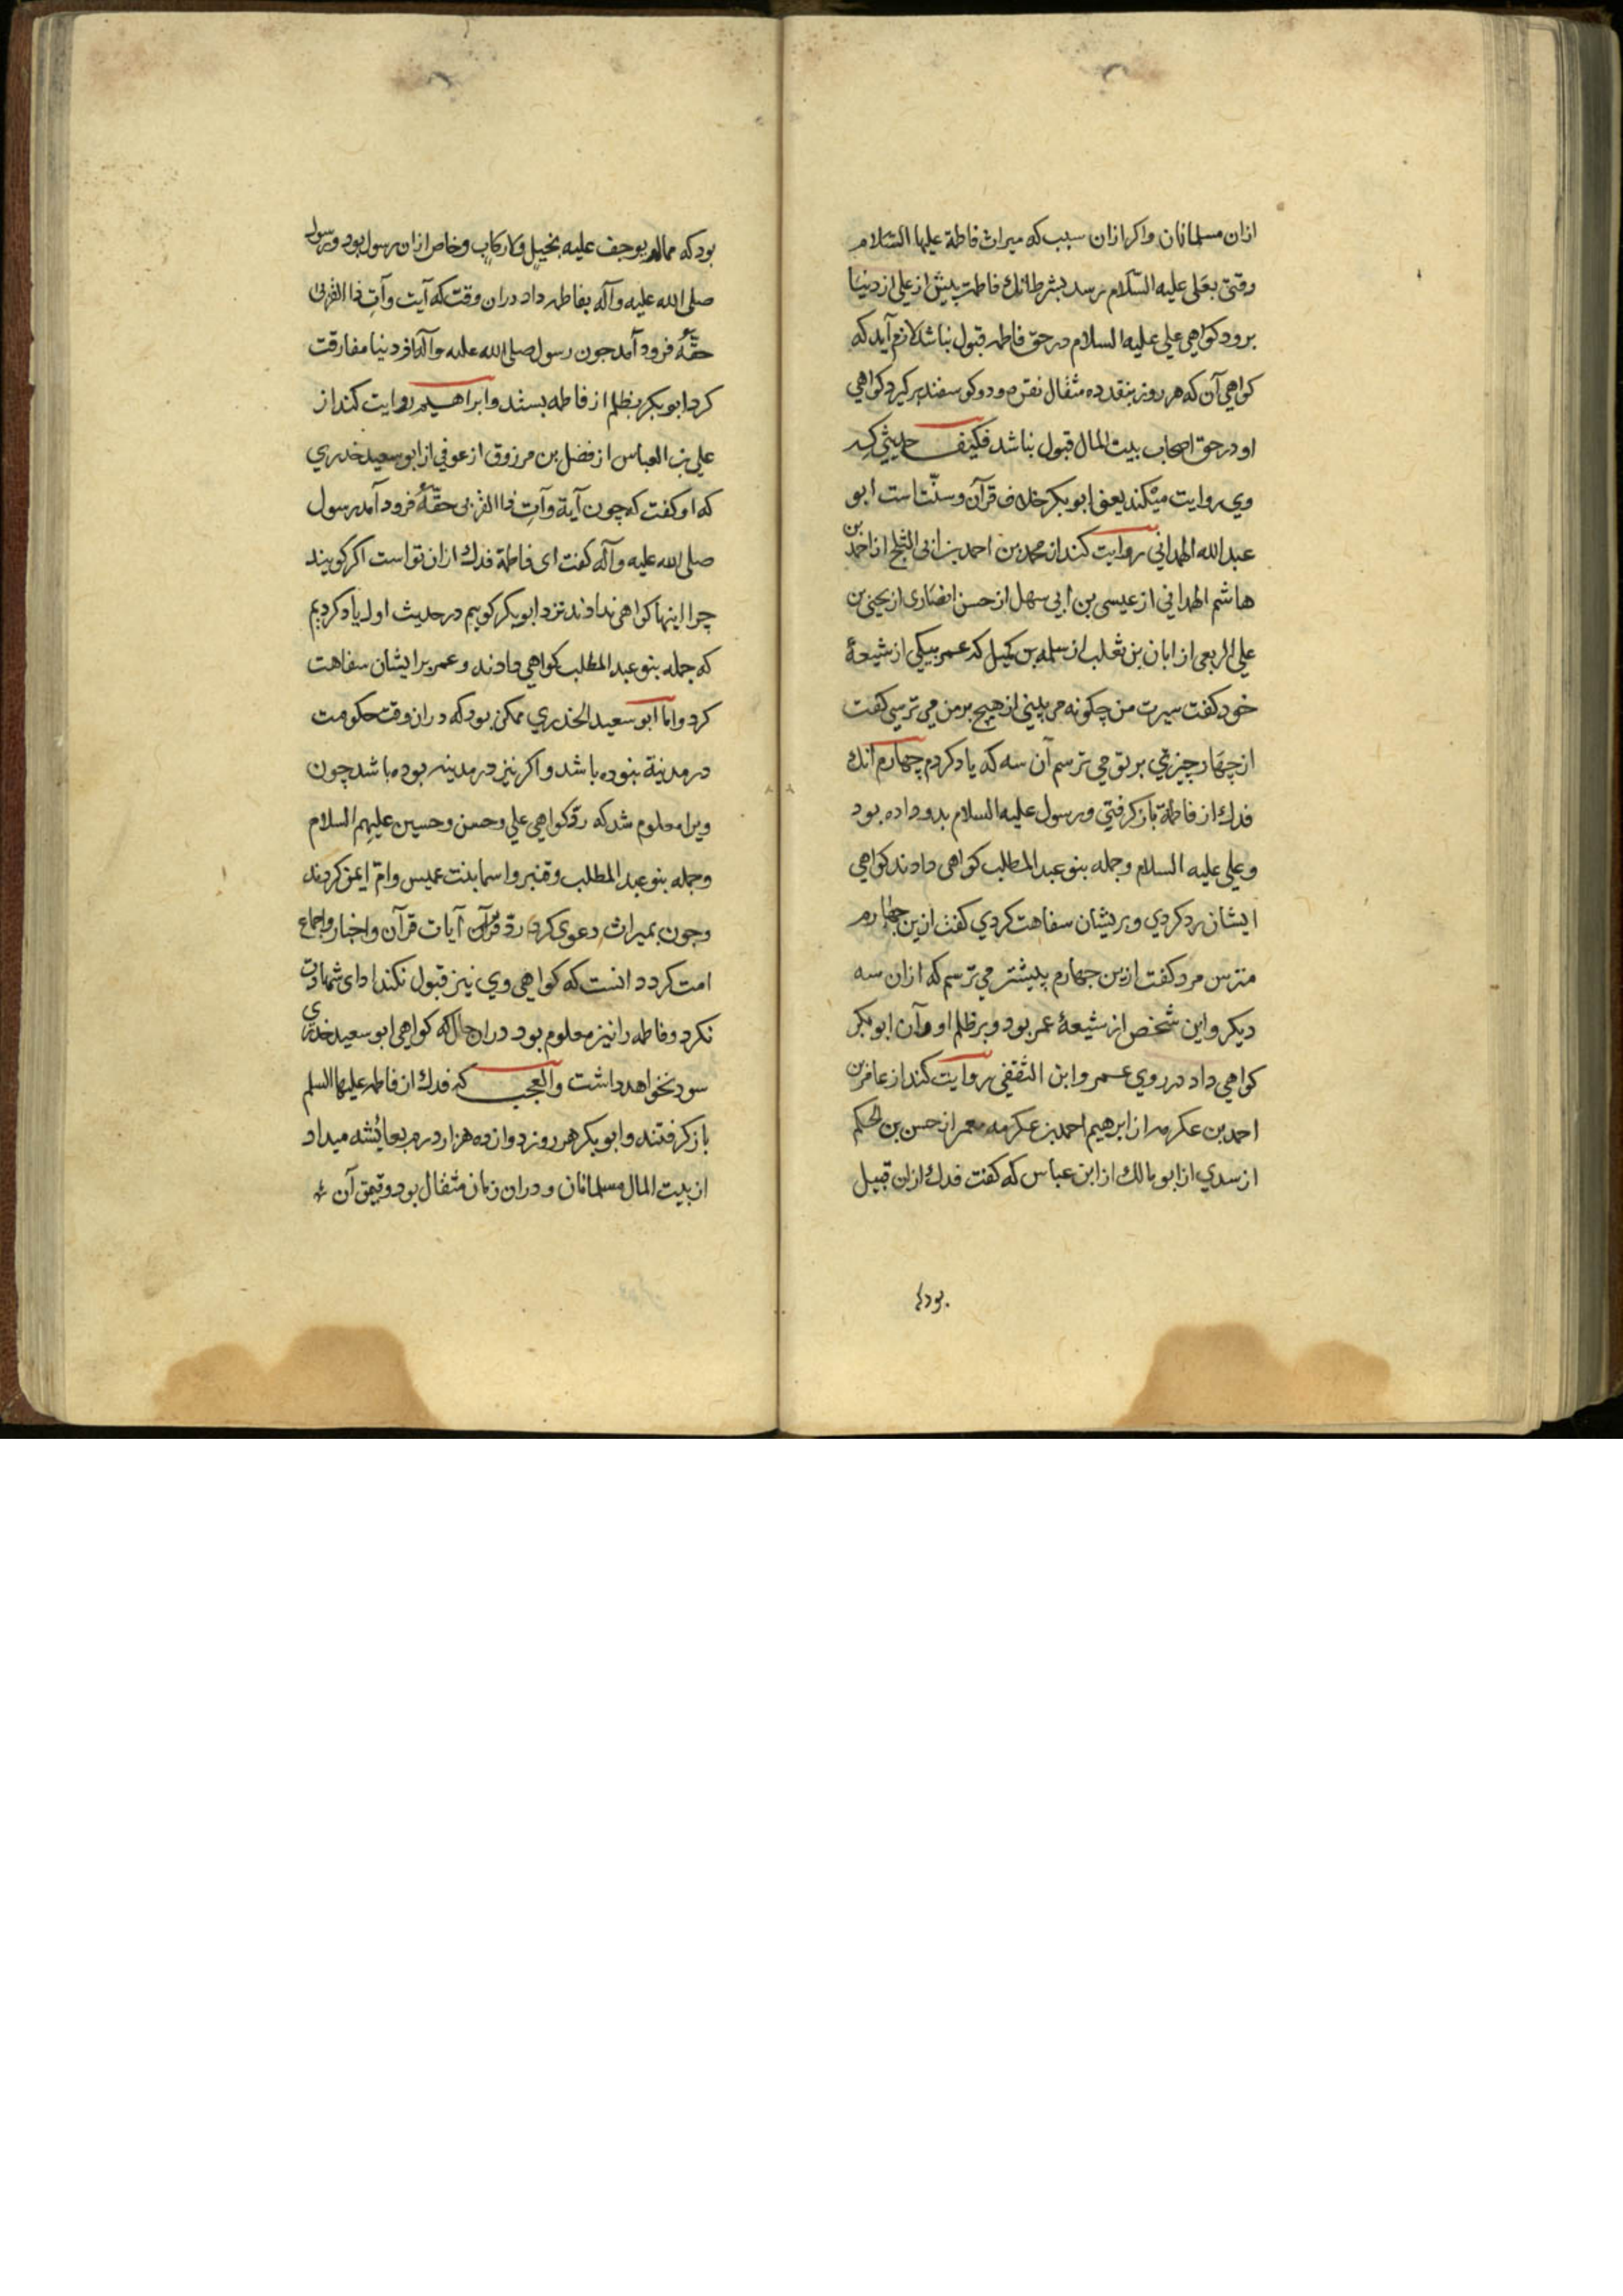 ازان مسلمانان واکر ازان سبب که میراث فاطمة علیها السّلام
وقتی بعلی علیه السّلام رسد بشرط انك فاطمه پیش از علی از دنیا
برود کواهی علی علیه السلام در حق فاطمه قبول نباشد لازم آید که
کواهی آن که هر روز بنقد ده مثقال نقره و دو کوسفند برکیرد کواهی
او در حق اصحاب بیت المال قبول نباشد فکیف حدیثی که
وی روایت میکند یعنی ابوبکر خلاف قرآن وسنّت است ابو
عبد الله الهمدانی روایت کند از محمد بن احمد بن ابی الثلج از احمد بن
هاشم الهمدانی از عیسی بن ابی سهل از حسن انصاری از یحیی بن
علی الربعی از ابان بن تغلب از سلمه بن کهیل که عمر بیکی از شیعهٔ
خود کفت سیرت من چکونه می بینی از هیچ بر من می ترسی کفت
از چهار چیز بر تو می ترسم آن سه که یاد کردم چهارم انك
فدك از فاطمة باز کرفتی ورسول علیه السلام بدو داده بود
وعلی علیه السلام وجمله بنو عبد المطلب کواهی دادند کواهی
ایشان رد کردی وبریشان سفاهت کردی کفت ازین چهارم
مترس مرد کفت ازین جهارم بیشتر می ترسم که ازان سه
دیکر واین شخص از شیعهٔ عمر بود وبر ظلم او وآن ابوبکر
کواهی داد در روی عمر وابن الثقفی روایت کند از عامر بن
احمد بن عکرمه از ابرهیم احمد بن عکرمه معمر از حسن بن الحکم
از سدی از ابو مالك از ابن عباس که کفت فدك ازان قبیل
بود که
بود که ممالم یوجف علیه بخیل ولا رکاب وخاص ازان رسول بود ورسول
صلی الله علیه وآله بفاطمه داد دران وقت که آیت وآت ذا القربی
حقّهُ فرود آمد جون رسول صلی الله علیه وآله از دنیا مفارقت
کرد ابوبکر بظلم از فاطمه بستد وابراهیم روایت کند از
علی بن العباس از فضل بن مرزوق از عوفی از ابو سعید خدری
که او کفت که چون آیة وآت ذا القربی حقّهُ فرود آمد رسول
صلی الله علیه وآله کفت ای فاطمة فدك ازان تو است اکر کویند
چرا اینها کواهی ندادند نزد ابوبکر کوییم در حدیث اول یاد کردیم
که جمله بنو عبد المطلب کواهی دادند وعمر بر ایشان سفاهت
کرد واما ابو سعید الخدری ممکن بود که دران وقت حکومت
در مدینة نبوده باشد واکر نیز در مدینه بوده باشد چون
ویرا معلوم شد که ردّ کواهی علی وحسن وحسین علیهم السلام
وجمله بنو عبد المطلب وقنبر واسما بنت عمیس وامّ ایمن کردند
وجون بمیراث دعوی کرد ردّ قرآن آیات قرآن واخبار واجماع
امت کرد دانست که کواهی وی نیز قبول نکند ادای شهادت
نکرد وفاطمه را نیز معلوم بود دران حال که کواهی ابو سعید خدری
سود نخواهد داشت والعجب که فدك از فاطمه علیها السلم
باز کرفتند وابوبکر هر روز دوازده هزار درم بعائشه میداد
از بیت المال مسلمانان ودران زمان مثقال بود وقیمت آن